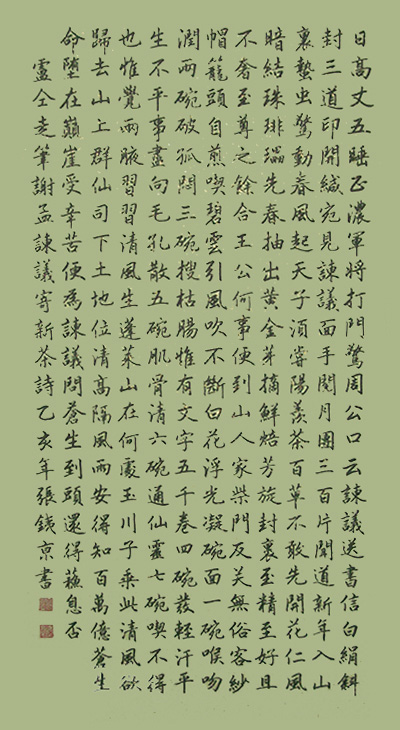 日高丈五睡正濃軍將打門驚周公口云諫議送書信白絹斜
封三道印開緘宛見諫議面手閱月團三百片聞道新年入山
裏蟄虫驚動春風起天子須嘗陽羨茶百草不敢先開花仁風
暗結珠琲瓃先春抽出黃金芽摘鮮焙芳旋封裹至精至好且
不奢至尊之餘合王公何事便到山人家柴門反关無俗客紗
帽籠頭自煎喫碧雲引風吹不斷白花浮光凝碗面一碗喉吻
潤兩碗破孤悶三碗搜枯腸惟有文字五千卷四碗發輕汗平
生不平事盡向毛孔散五碗肌骨清六碗通仙靈七碗喫不得
也惟覺兩腋習習清風生蓬萊山在何處玉川子乘此清風欲
歸去山上群仙司下土地位清高隔風雨安得知百萬億蒼生
命墮在巔崖受辛苦便為諫議問蒼生到頭還得蘇息否
盧仝走筆謝孟諫議寄新茶詩乙亥年張銕京書